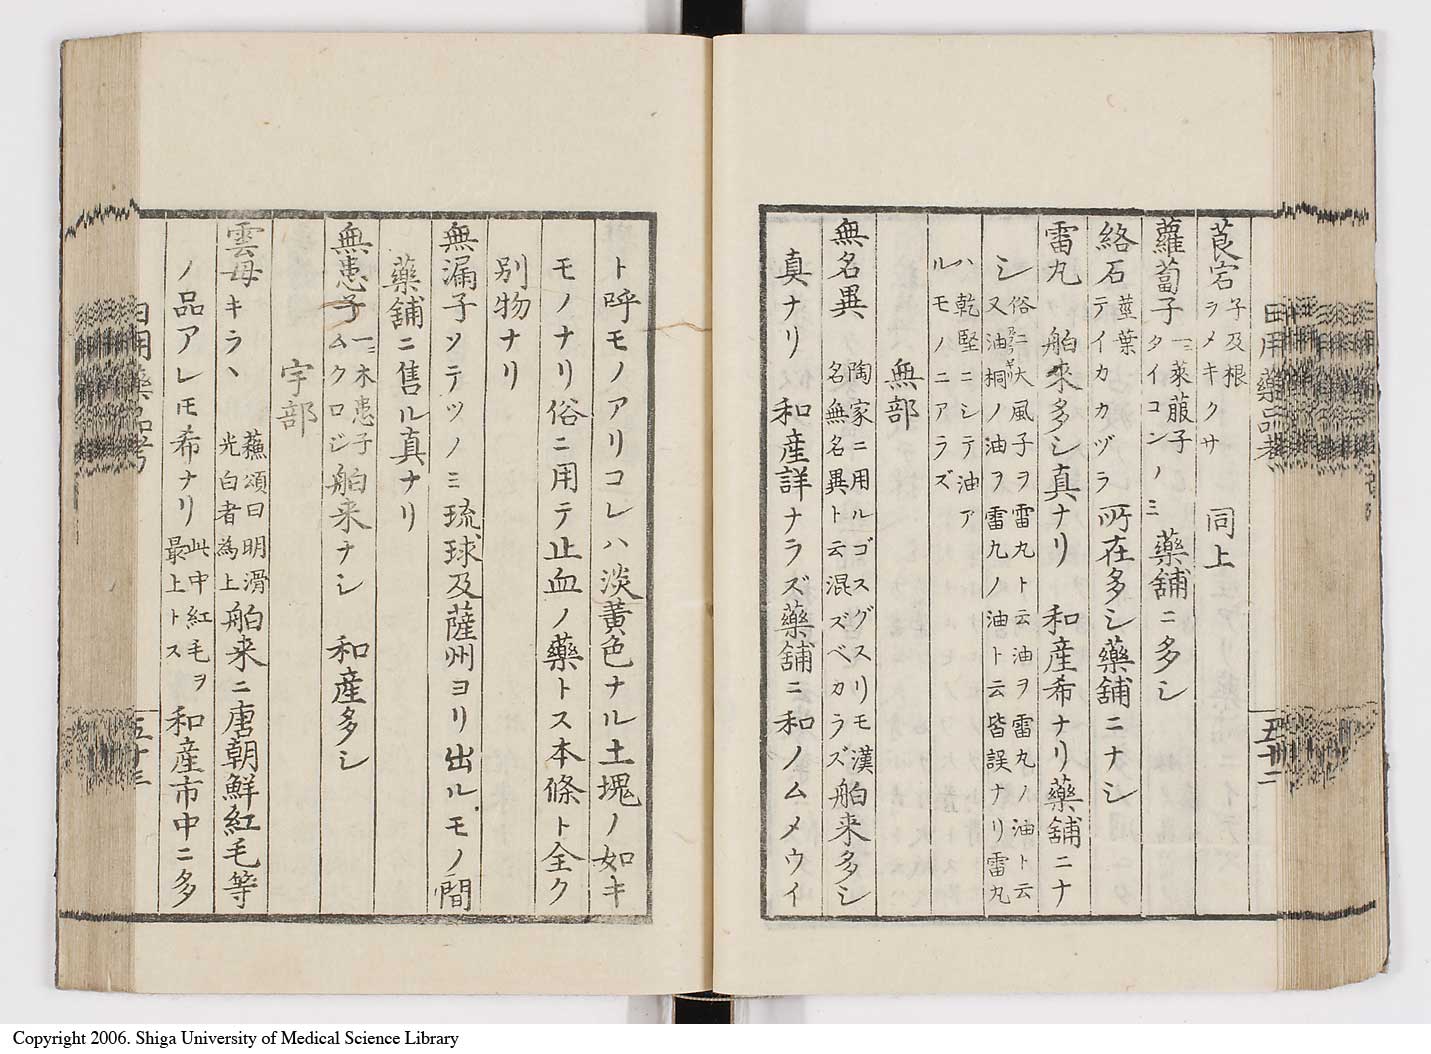 莨宕 子及根 ラメキクサ 同上
蘿蔔子 一ニ萊菔子 タイコンノミ 藥舗ニ多シ
絡石 莖葉 テイカカヅラ 所在多シ藥舗ニナシ
雷丸 舶來多シ真ナリ 和産希ナリ藥舗ニナ
シ 俗ニ大風子ヲ雷丸ト云油ヲ雷丸ノ油ト云 又油桐ノ油ヲ雷丸ノ油ト云皆誤ナリ雷丸
ハ乾堅ニシテ油ア ルモノニアラズ
無部
無名異 陶家ニ用ルゴスグスリモ漢 名無名異ト云混ズベカラズ 舶来多シ
真ナリ 和産詳ナラズ藥舗ニ和ノムメウイ
日用藥品考
五十二
ト呼モノアリコレハ淡黄色ナル土塊ノ如キ
モノナリ俗ニ用テ止血ノ藥トス本條ト全ク
別物ナリ
無漏子 ソテツノミ 琉球及薩州ヨリ出ルモノ間
藥舗ニ售ル真ナリ
無患子 一ニ木患子 ムクロジ 舶来ナシ 和産多シ
宇部
雲母 キラヽ 蘓頌曰明滑 光白者為上 舶来ニ唐朝鮮紅毛等
ノ品アレ𪜈希ナリ 此中紅毛ヲ 最上トス 和産市中ニ多
日用藥品考
五十三
Copyright 2006. Shiga University of Medical Science Library